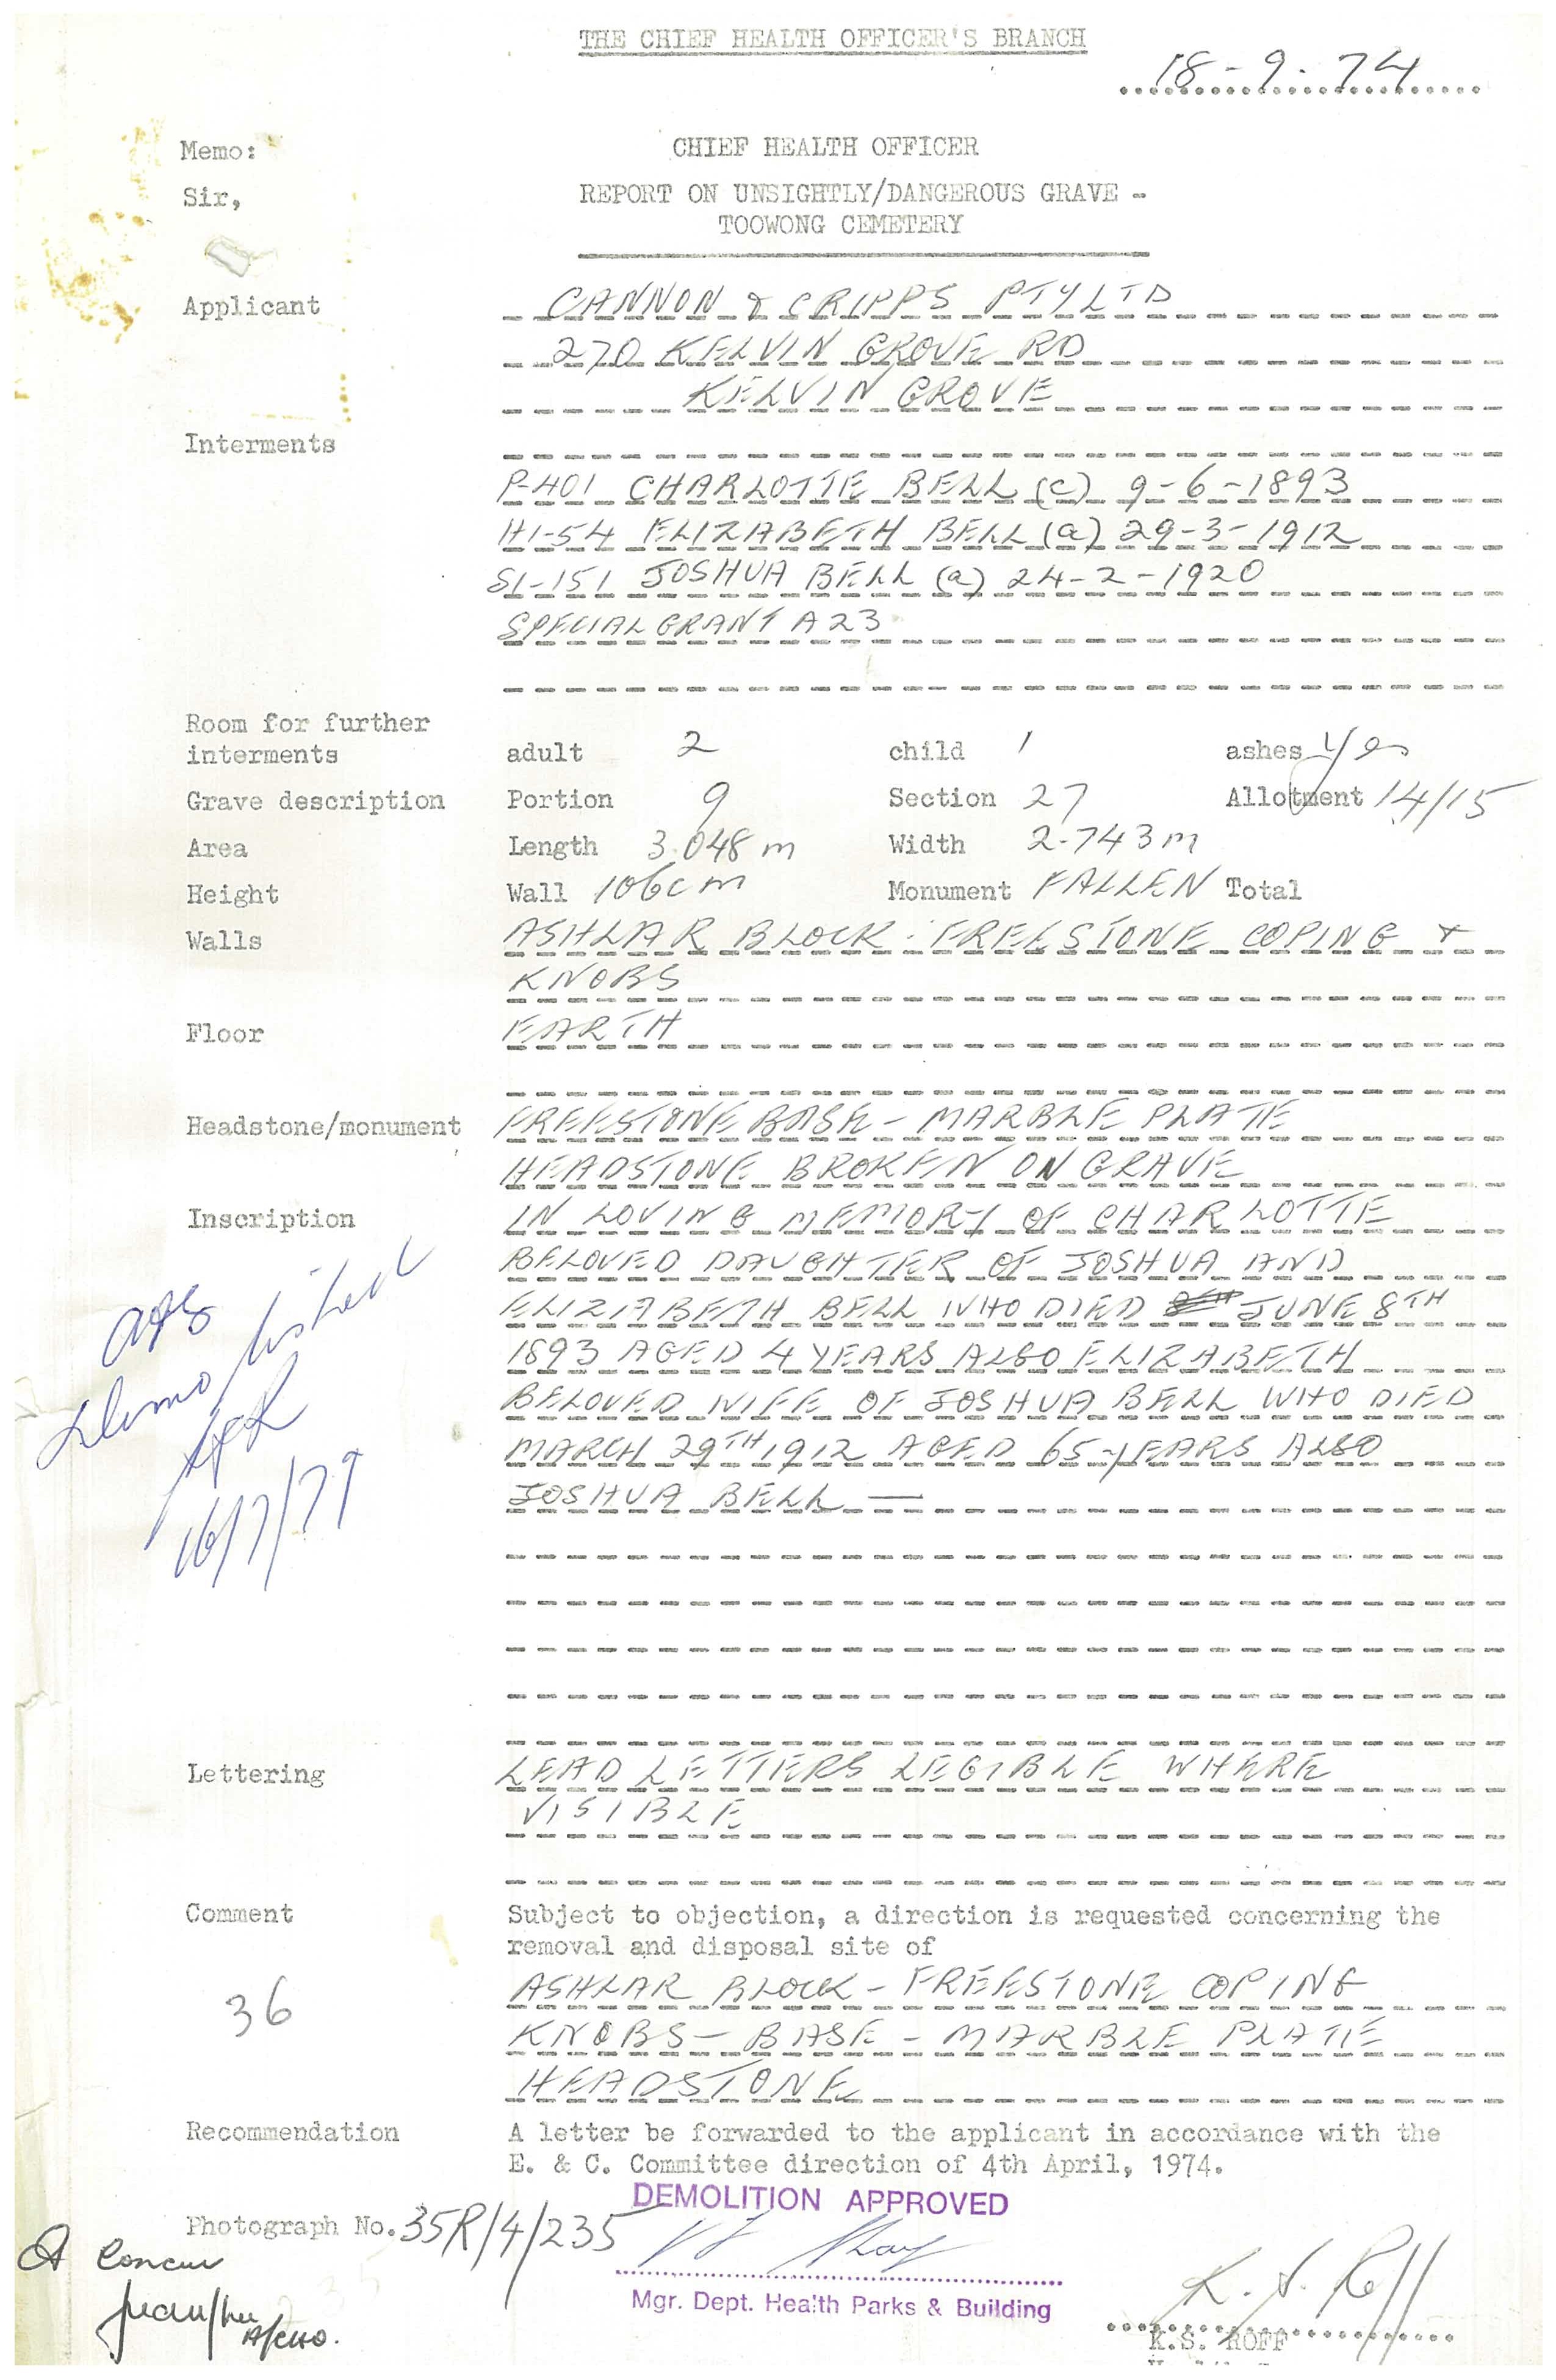 THE CHIEF HEALTH OFFICER'S BRANCH
18-9-74
Memo:
CHIEF HEALTH OFFICER
Sir,
REPORT ON UNSIGHTLY/DANGEROUS GRAVE -
TOOWONG CEMETERY
Applicant CANNON & CRIPPS PTY LTD
270 KELVIN GROVE RD
KELVIN GROVE
Interments
P-401 CHARLOTTE BELL (c) 9-6-1893
H1-54 ELIZABETH BELL (a) 29-3-1912
S1-151 JOSHUA BELL (a) 24-2-1920
SPECIAL GRANT A23
Room for further
interments adult 2 child 1 ashes yes
Grave description Portion 9 Section 27 Allotment 14/15
Area Length 3.048 m Width 2.743 m
Height Wall 106cm Monument FALLEN Total
Walls ASHLAR BLOCK - FREESTONE COPING &
KNOBS
Floor EARTH
Headstone/monument FREESTONE BASE - MARBLE PLATE
HEADSTONE BROKEN ON GRAVE
Inscription IN LOVING MEMORY OF CHARLOTTE
BELOVED DAUGHTER OF JOSHUA AND
ELIZABETH BELL WHO DIED JUNE 8TH
1893 AGED 4 YEARS ALSO ELIZABETH
BELOVED WIFE OF JOSHUA BELL WHO DIED
MARCH 29TH 1912 AGED 65 YEARS ALSO
JOSHUA BELL —
demolished
16/7/79
Lettering LEAD LETTERS LEGIBLE WHERE
VISIBLE
Comment Subject to objection, a direction is requested concerning the
removal and disposal site of
36
ASHLAR BLOCK - FREESTONE COPING
KNOBS - BASE - MARBLE PLATE
HEADSTONE
Recommendation A letter be forwarded to the applicant in accordance with the
E. & C. Committee direction of 4th April, 1974.
DEMOLITION APPROVED
Photograph No. 35R/4/235
Mgr. Dept. Health Parks & Building
I concur
A/CHO.
K. S. Roff
K.S. ROFF